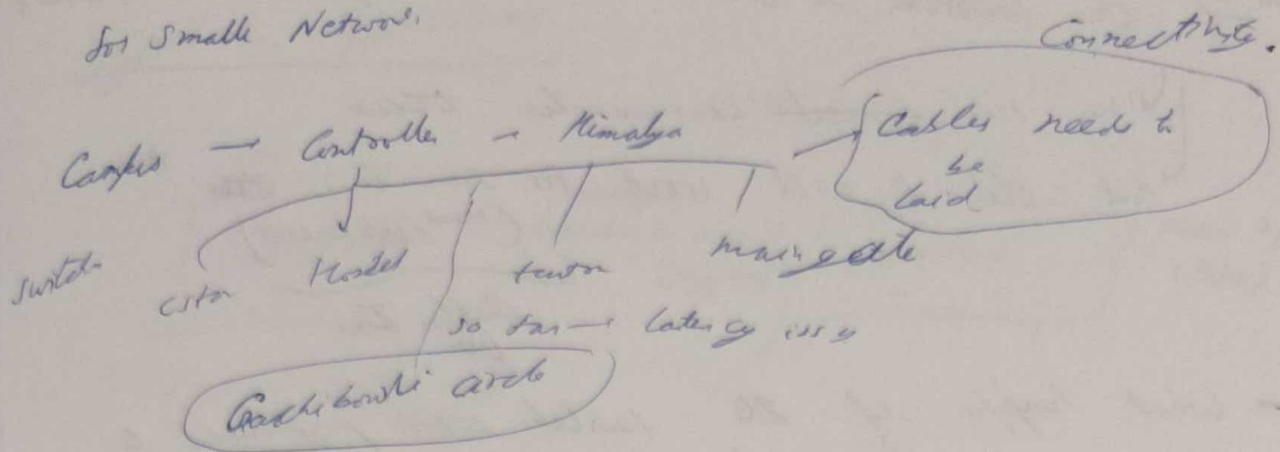 for Smalle Network.
Connectivity.
Campus → Controller - Himalya → Cables need to
be
laid
switch Hostel maingate
so far → latency issu
Gachibowli circle